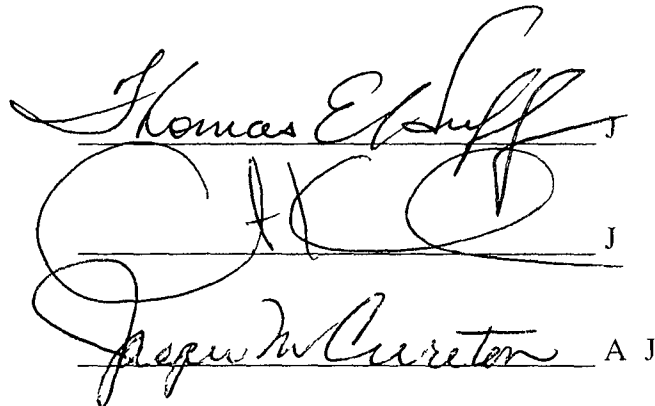 Thomas E Huff J
J
Jasper M Cureton A J